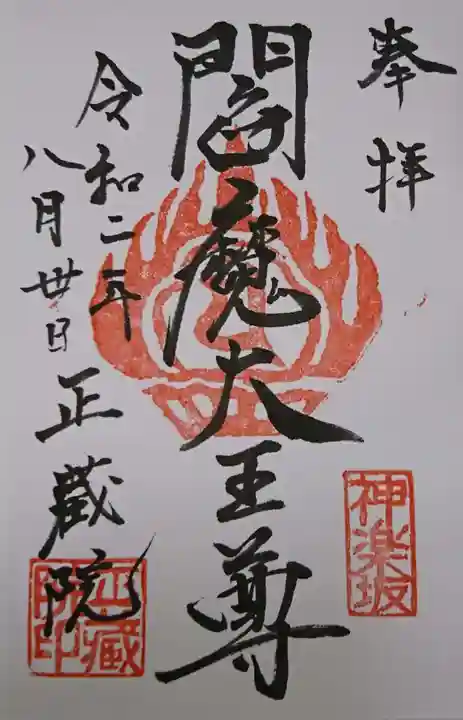 奉拝
閻魔大王尊
令和二年
八月丗日
正蔵院
神楽坂
正蔵院印